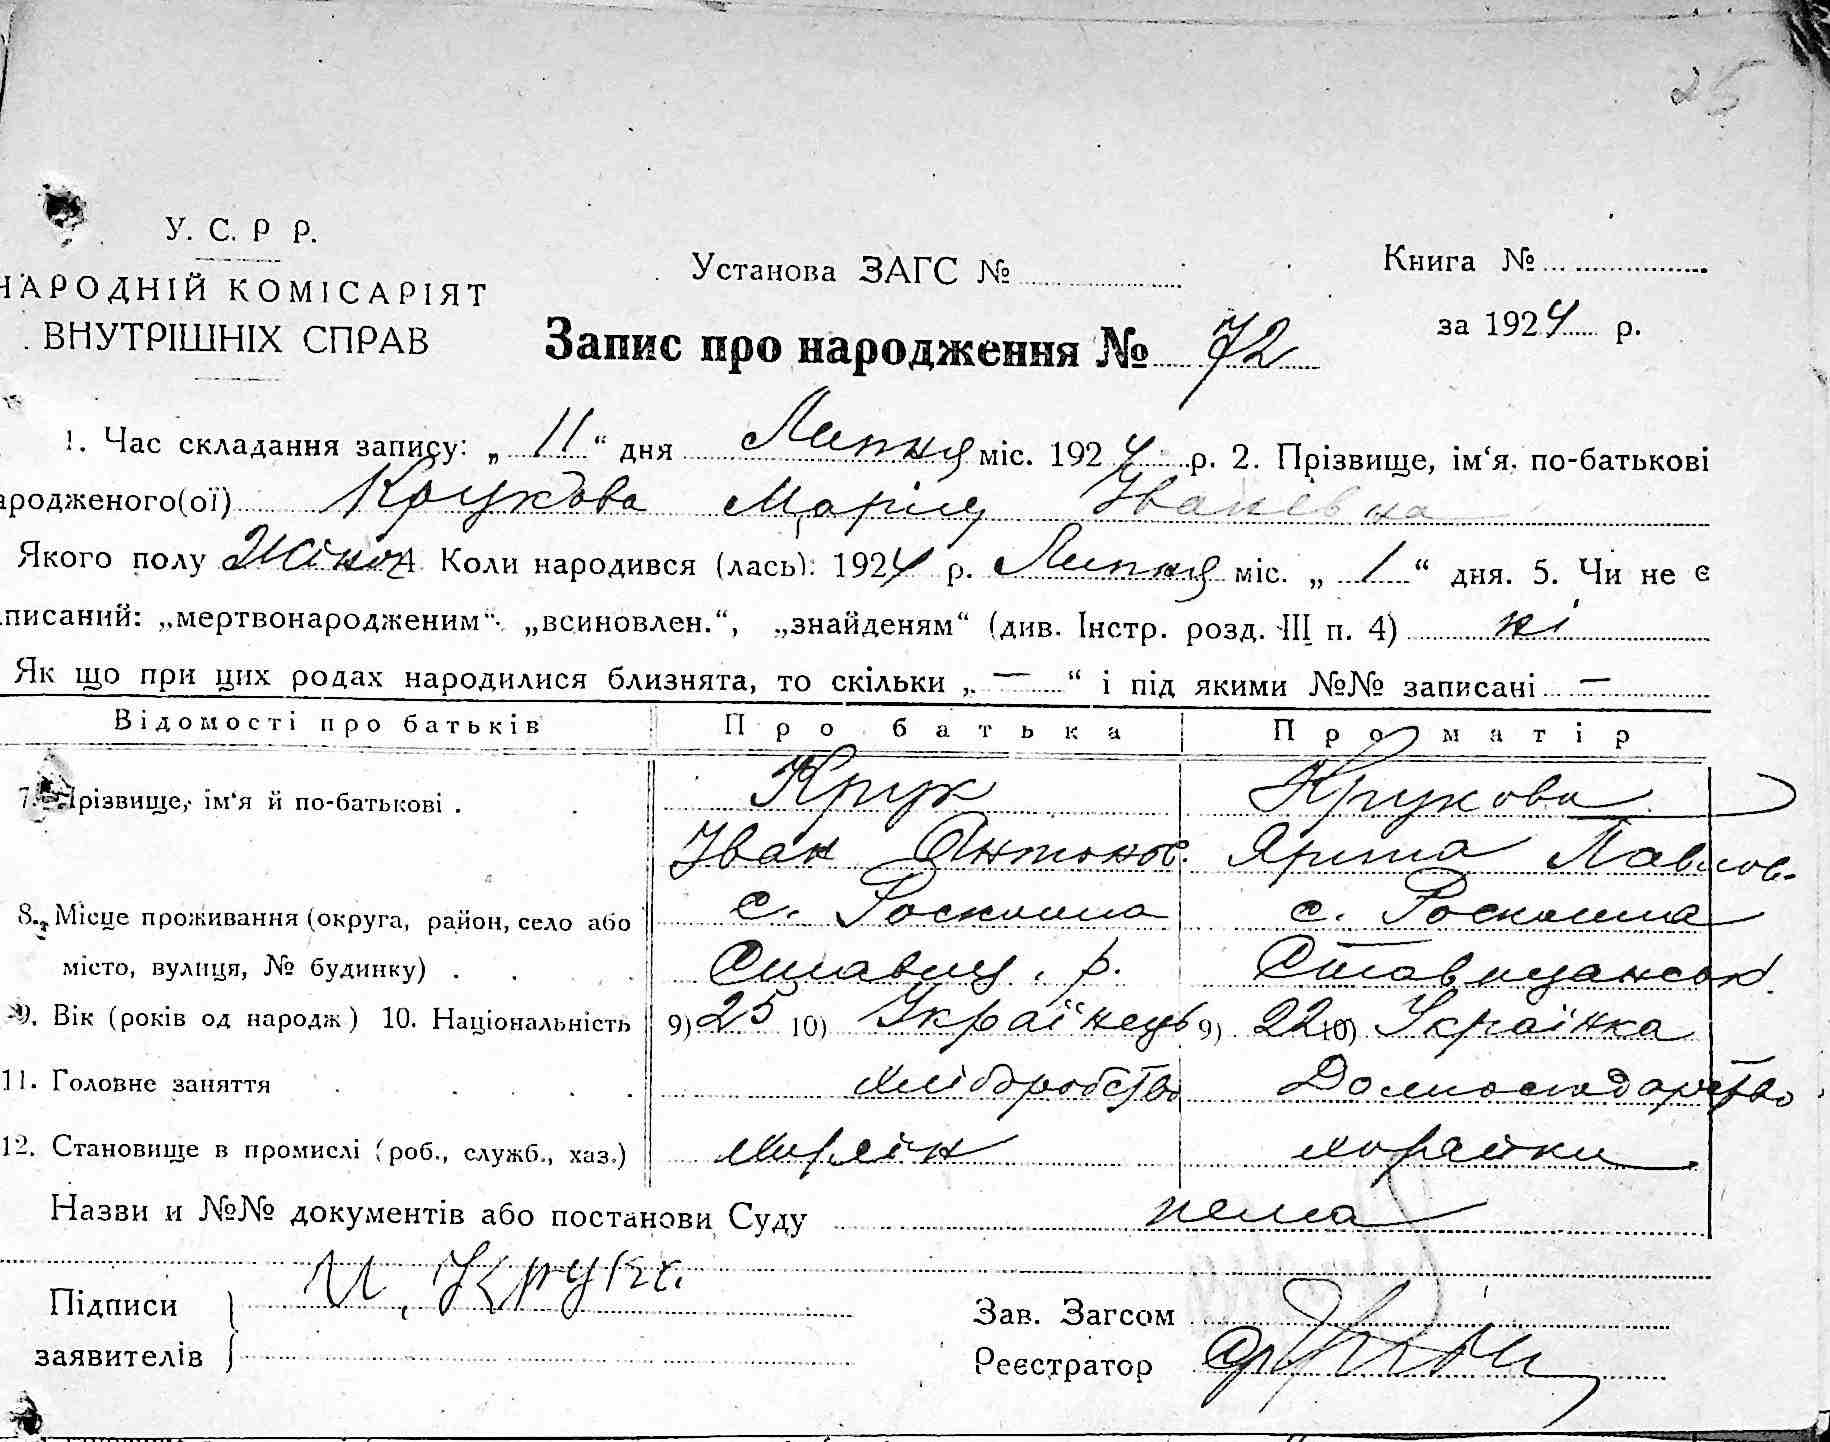 25
У. С. Р Р.
НАРОДНІЙ КОМІСАРІЯТ
ВНУТРІШНІХ СПРАВ
Установа ЗАГС №
Книга №
за 1924 р.
Запис про народження № 72
1. Час складання запису: „ 11 “ дня Липня міс. 1924 р. 2. Прізвище, ім‘я, по-батькові
ародженого(ої) Крукова Марія Іванівна
Якого полу Жіноч Коли народився (лась): 1924 р. Липня міс. „ 1 “ дня. 5. Чи не є
писаний: „мертвонародженим“, „всиновлен.“, „знайденям“ (див. Інстр. розд. III п. 4) ні
Як що при цих родах народилися близнята, то скільки „ — “ і під якими №№ записані —
Відомості про батьків Про батька Про матір
7. Прізвище, ім‘я й по-батькові . Крук Крукова
Іван Антонов. Ярина Павлов.
8. Місце проживання (округа, район, село або с. Роскошна с. Роскошна
місто, вулиця, № будинку) . Ставищ. р. Ставищанськ.
9. Вік (років од народж) 10. Національність 9) 25 10) Українець 9) 22 10) Українка
11. Головне заняття хліборобство Домогосподарство
12. Становище в промислі (роб., служб., хаз.)
Назви и №№ документів або постанови Суду нема
Підписи И. Крук
заявителів
Зав. Загсом
Реєстратор